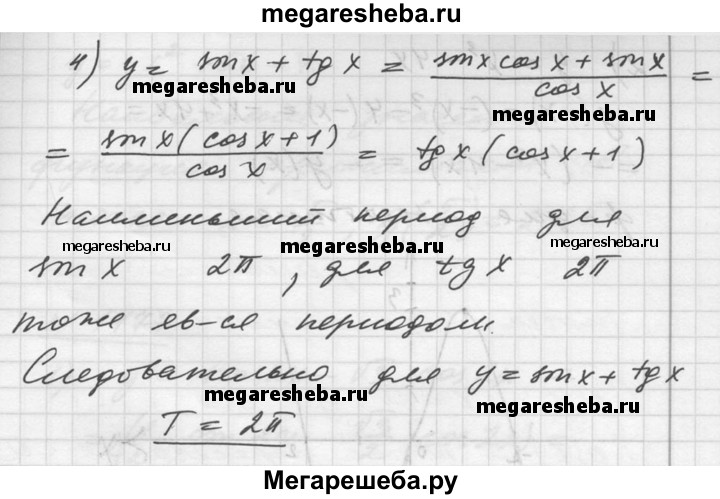 megaresheba.ru
4) y = sin x + tg x = (sin x cos x + sin x)/cos x =
megaresheba.ru megaresheba.ru
= sin x (cos x + 1)/cos x = tg x (cos x + 1)
Наименьший период для
megaresheba.ru megaresheba.ru megaresheba.ru
sin x 2π, для tg x 2π
тоже яв-ся периодом.
Следовательно для y = sin x + tg x
megaresheba.ru megaresheba.ru
T = 2π
Мегарешеба.ру